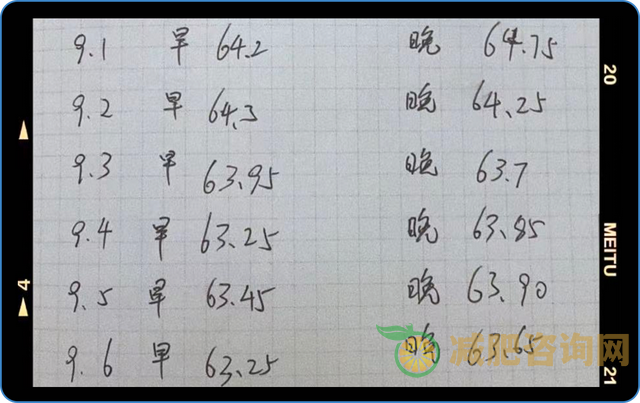 9.1 早 64.2 晚 64.75
9.2 早 64.3 晚 64.25
9.3 早 63.95 晚 63.7
9.4 早 63.25 晚 63.85
9.5 早 63.45 晚 63.90
9.6 早 63.25 晚 63.65
减肥咨询网
20
MEITU
21
4